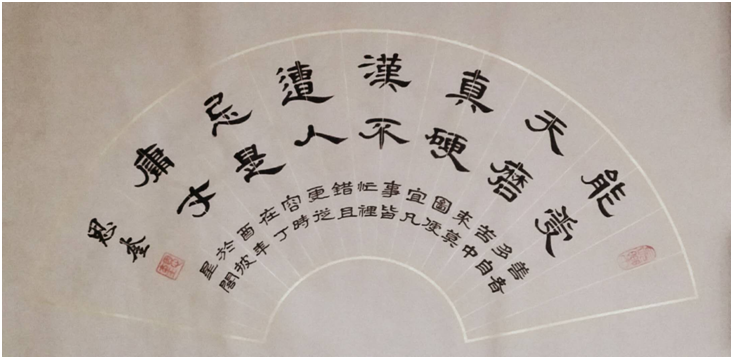 能受
天磨
真硬
漢不
遭人
忌是
庸才
善音
多自
苦中
来莫
圖便
宜凡
事皆
忙裡
錯且
更從
容時
在丁
酉年
於坡
星閣
思奎